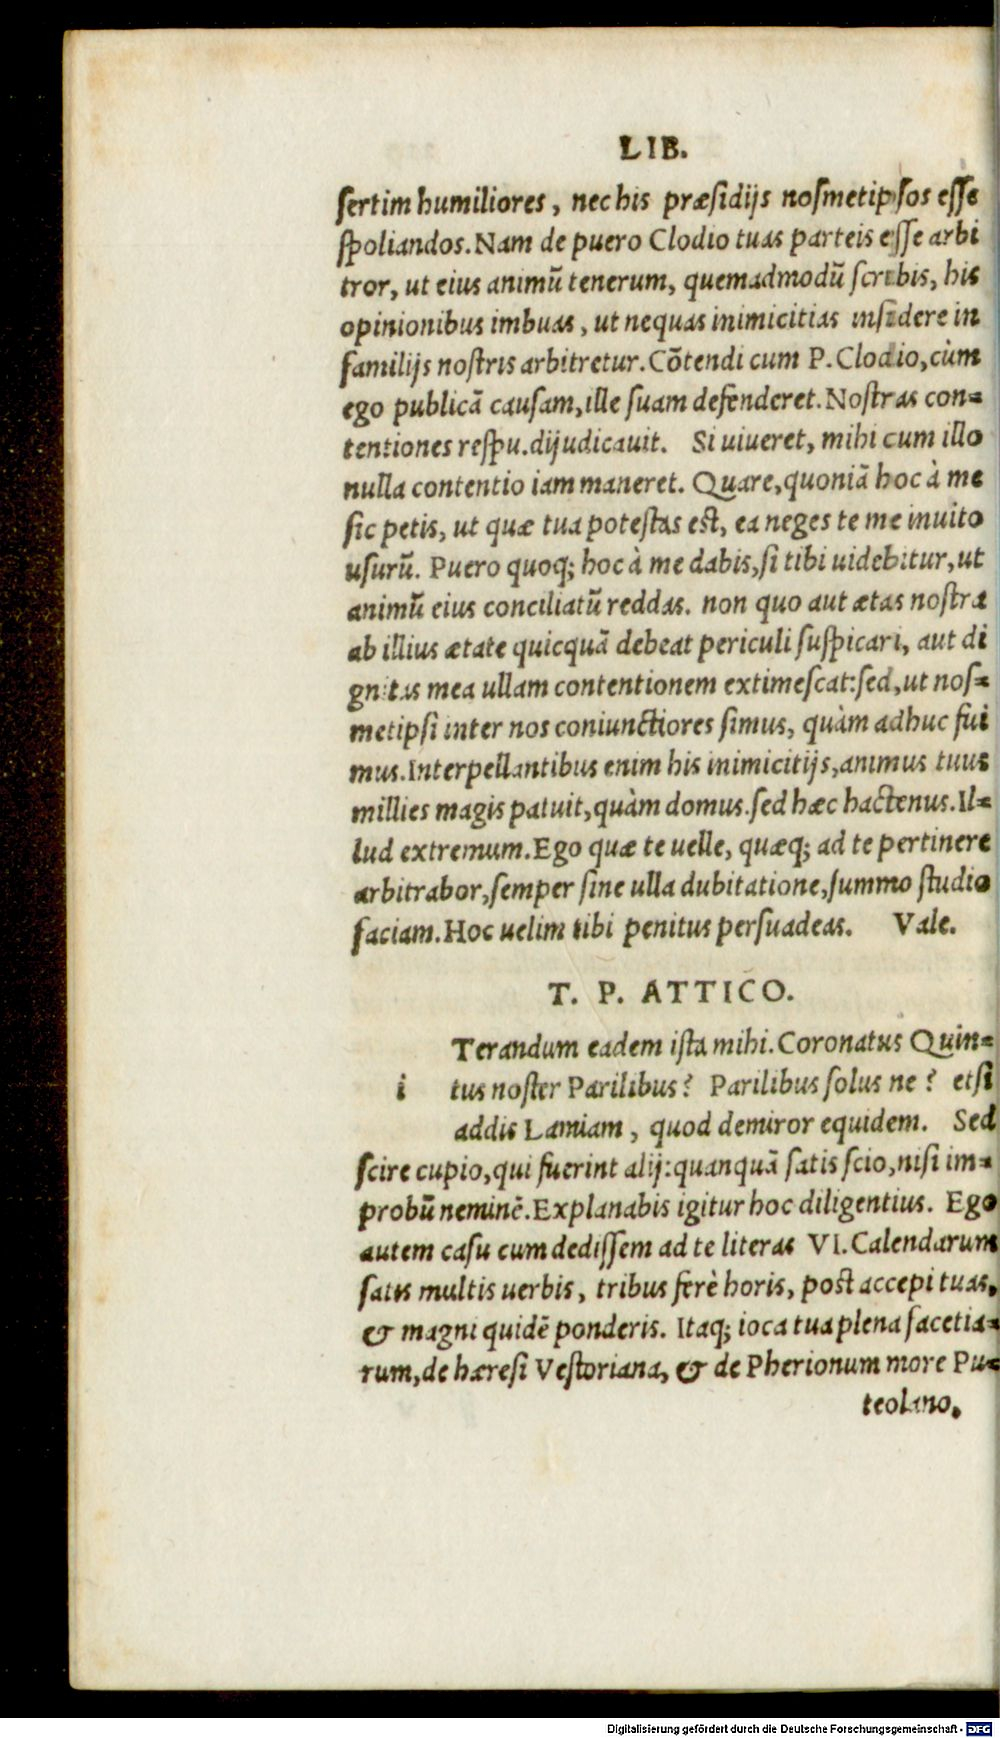 LIB.
sertim humiliores, nec his præsidijs nosmetipsos esse
spoliandos. Nam de puero Clodio tuas parteis esse arbi
tror, ut eius animũ tenerum, quemadmodũ scribis, his
opinionibus imbuas, ut ne quas inimicitias insidere in
familijs nostris arbitretur. Cõtendi cum P. Clodio, cùm
ego publicã causam, ille suam defenderet. Nostras con-
tentiones respu. dijudicauit. Si uiueret, mihi cum illo
nulla contentio iam maneret. Quare, quoniã hoc à me
sic petis, ut quæ tua potestas est, ea neges te me inuito
usurũ. Puero quoq; hoc à me dabis, si tibi uidebitur, ut
animũ eius conciliatũ reddas. non quo aut ætas nostra
ab illius ætate quicquã debeat periculi suspicari, aut di
gnitas mea ullam contentionem extimescat: sed, ut nos-
metipsi inter nos coniunctiores simus, quàm adhuc fui
mus. Interpellantibus enim his inimicitijs, animus tuus
millies magis patuit, quàm domus. sed hæc hactenus. Il-
lud extremum. Ego quæ te uelle, quæq; ad te pertinere
arbitrabor, semper sine ulla dubitatione, summo studio
faciam. Hoc uelim tibi penitus persuadeas. Vale.
T. P. ATTICO.
i Terandum eadem ista mihi. Coronatus Quin-
tus noster Parilibus? Parilibus solus ne? etsi
addis Lamiam, quod demiror equidem. Sed
scire cupio, qui fuerint alij: quanquã satis scio, nisi im-
probũ neminẽ. Explanabis igitur hoc diligentius. Ego
autem casu cum dedissem ad te literas VI. Calendarum
satis multis uerbis, tribus ferè horis, post accepi tuas,
& magni quidẽ ponderis. Itaq; ioca tua plena facetia-
rum, de hæresi Vestoriana, & de Pherionum more Pu-
teolano,
Digitalisierung gefördert durch die Deutsche Forschungsgemeinschaft - DFG